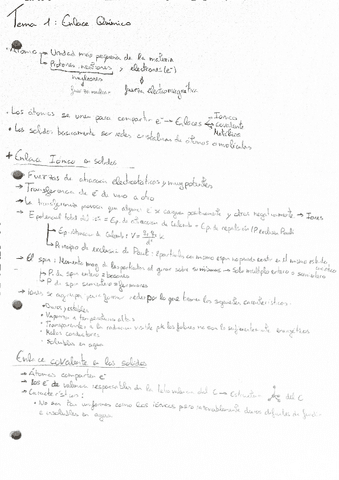 Tema 1: Enlace Químico
· Átomo → Unidad más pequeña de la materia
→ Protones, neutrones y electrones (e⁻)
nucleones
fuerza nuclear fuerza electromagnética
· Los átomos se unen para compartir e⁻ → Enlaces Iónico
covalente
Metálicos
· Los solidos basicamente son redes cristalinas de átomos o moleculas
Enlace Iónico en solidos
→ Fuerzas de atracción electrostáticas y muy potentes
→ Transferencia de e⁻ de uno a otro
→ La transferencia provoca que algunos e⁻ se carguen positivamente y otros negativamente → Iones
→ E potencial total del = Ep. de atracción de Coulomb + Ep. de repulsión
→ Ep. atracción de Coulomb: V =
→ Principio de exclusión de Pauli: 2 partículas con mismo espín no pueden estar en el mismo estado
→ El spin: Momento mag. de las partículas al girar sobre si mismas → Solo múltiplo entero o semientero
→ P. de spin entero = bosones
→ P. de spin semientero = fermiones
→ Iones se agrupan para formar redes por lo que tienen las siguientes características:
· Duros y estables
· Vaporizan a temperaturas altas
· Transparentes a la radiación visible
· Malos conductores
· Solubles en agua
Enlace covalente en los solidos
→ Átomos comparten e⁻
→ Los e⁻ de valencia responsables de la del C → Estructura del C
→ Características:
· No son tan uniformes como los iónicos pero
e insolubles en agua